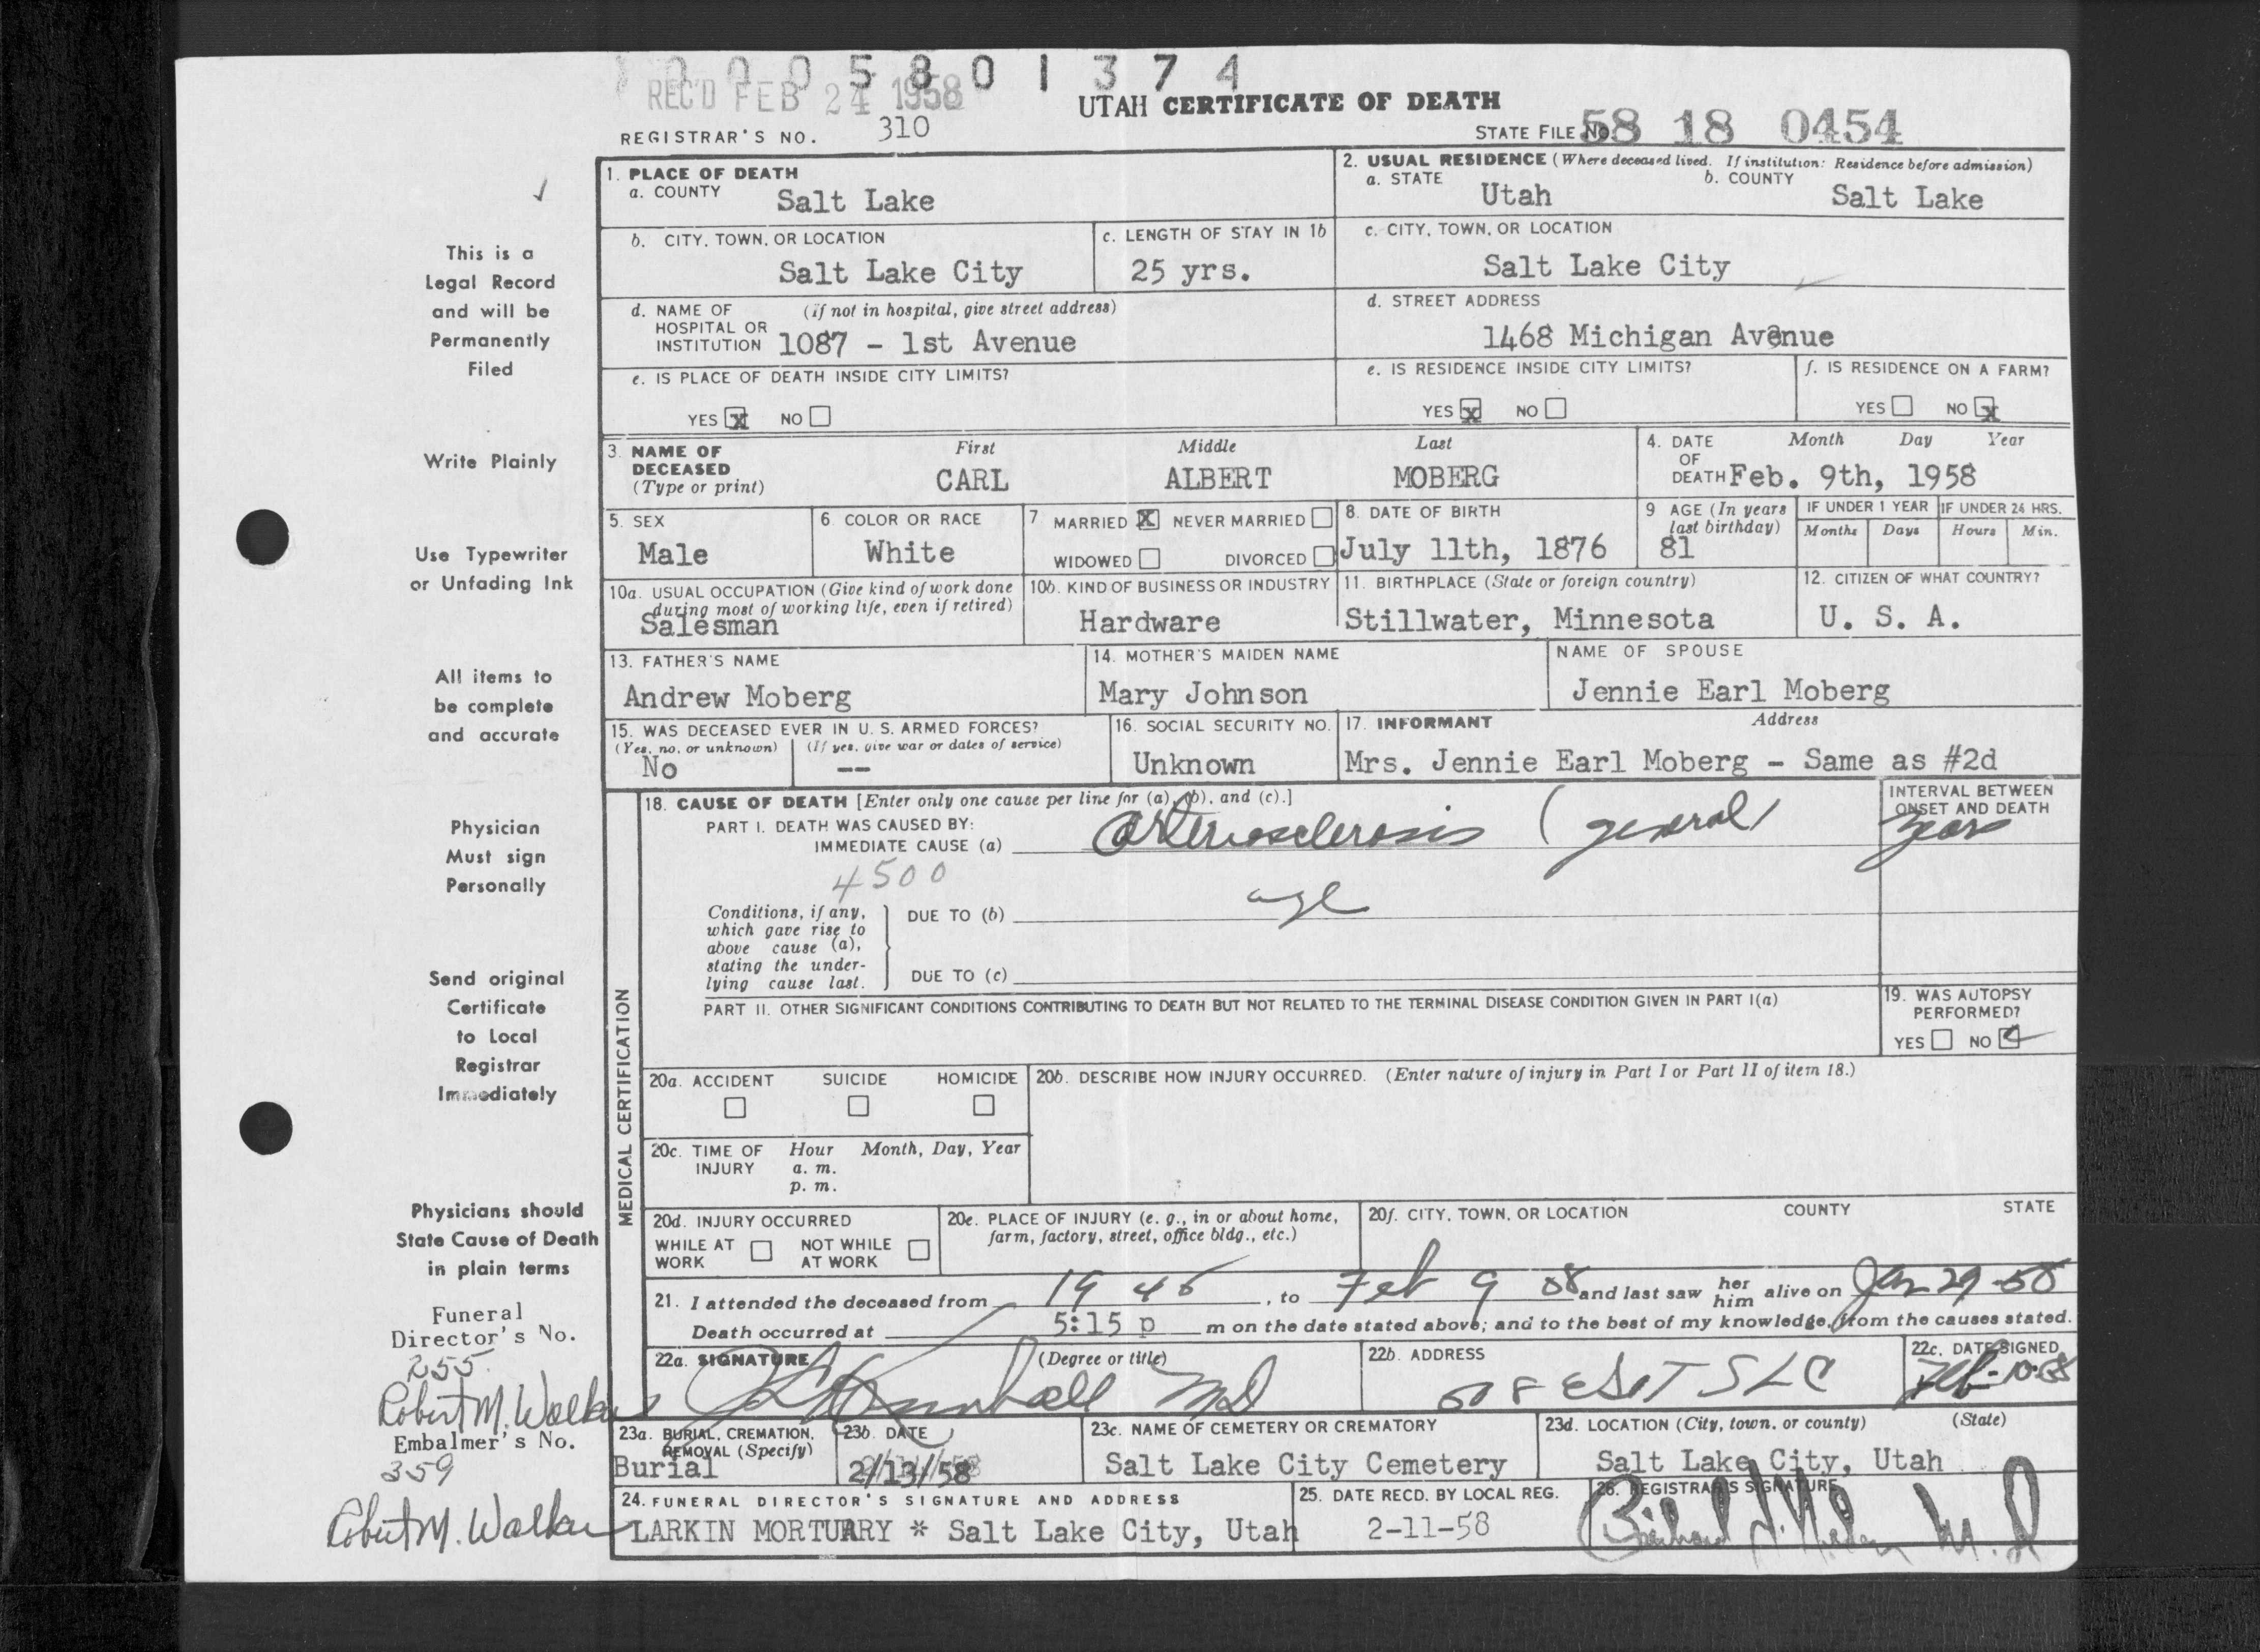 0005801374
REC'D FEB 24 1958
UTAH CERTIFICATE OF DEATH
REGISTRAR'S NO. 310
STATE FILE NO. 58 18 0454
This is a
Legal Record
and will be
Permanently
Filed
Write Plainly
Use Typewriter
or Unfading Ink
All items to
be complete
and accurate
Physician
Must sign
Personally
Send original
Certificate
to Local
Registrar
Immediately
Physicians should
State Cause of Death
in plain terms
Funeral
Director's No.
255
Robert M. Walker
Embalmer's No.
359
Robert M. Walker
1. PLACE OF DEATH
a. COUNTY Salt Lake
2. USUAL RESIDENCE (Where deceased lived. If institution: Residence before admission)
a. STATE Utah b. COUNTY Salt Lake
b. CITY, TOWN, OR LOCATION Salt Lake City
c. LENGTH OF STAY IN 1b 25 yrs.
c. CITY, TOWN, OR LOCATION Salt Lake City
d. NAME OF HOSPITAL OR INSTITUTION (If not in hospital, give street address) 1087 - 1st Avenue
d. STREET ADDRESS 1468 Michigan Avenue
e. IS PLACE OF DEATH INSIDE CITY LIMITS?
YES X NO
e. IS RESIDENCE INSIDE CITY LIMITS?
YES X NO
f. IS RESIDENCE ON A FARM?
YES NO X
3. NAME OF DECEASED (Type or print)
First Middle Last
CARL ALBERT MOBERG
4. DATE OF DEATH Month Day Year
Feb. 9th, 1958
5. SEX Male
6. COLOR OR RACE White
7 MARRIED X NEVER MARRIED
WIDOWED DIVORCED
8. DATE OF BIRTH July 11th, 1876
9 AGE (In years last birthday) 81
IF UNDER 1 YEAR Months Days
IF UNDER 24 HRS. Hours Min.
10a. USUAL OCCUPATION (Give kind of work done during most of working life, even if retired) Salesman
10b. KIND OF BUSINESS OR INDUSTRY Hardware
11. BIRTHPLACE (State or foreign country) Stillwater, Minnesota
12. CITIZEN OF WHAT COUNTRY? U. S. A.
13. FATHER'S NAME Andrew Moberg
14. MOTHER'S MAIDEN NAME Mary Johnson
NAME OF SPOUSE Jennie Earl Moberg
15. WAS DECEASED EVER IN U. S. ARMED FORCES?
(Yes, no, or unknown) No
(If yes, give war or dates of service) --
16. SOCIAL SECURITY NO. Unknown
17. INFORMANT Address
Mrs. Jennie Earl Moberg - Same as #2d
MEDICAL CERTIFICATION
18. CAUSE OF DEATH [Enter only one cause per line for (a), (b), and (c).]
PART I. DEATH WAS CAUSED BY:
IMMEDIATE CAUSE (a) Arteriosclerosis (general)
INTERVAL BETWEEN ONSET AND DEATH
years
4500
Conditions, if any, which gave rise to above cause (a), stating the underlying cause last.
DUE TO (b) age
DUE TO (c)
PART II. OTHER SIGNIFICANT CONDITIONS CONTRIBUTING TO DEATH BUT NOT RELATED TO THE TERMINAL DISEASE CONDITION GIVEN IN PART I(a)
19. WAS AUTOPSY PERFORMED?
YES NO
20a. ACCIDENT SUICIDE HOMICIDE
20b. DESCRIBE HOW INJURY OCCURRED. (Enter nature of injury in Part I or Part II of item 18.)
20c. TIME OF INJURY Hour Month, Day, Year
a. m.
p. m.
20d. INJURY OCCURRED
WHILE AT WORK NOT WHILE AT WORK
20e. PLACE OF INJURY (e. g., in or about home, farm, factory, street, office bldg., etc.)
20f. CITY, TOWN, OR LOCATION COUNTY STATE
21. I attended the deceased from 19 , to Feb 9 58 and last saw her him alive on Jan 29-58
Death occurred at 5:15 p m on the date stated above; and to the best of my knowledge, from the causes stated.
22a. SIGNATURE (Degree or title)
MD
22b. ADDRESS
SLC
22c. DATE SIGNED
Feb-10-58
23a. BURIAL, CREMATION, REMOVAL (Specify) Burial
23b. DATE 2/13/58
23c. NAME OF CEMETERY OR CREMATORY Salt Lake City Cemetery
23d. LOCATION (City, town, or county) (State) Salt Lake City, Utah
24. FUNERAL DIRECTOR'S SIGNATURE AND ADDRESS
LARKIN MORTUARY * Salt Lake City, Utah
25. DATE RECD. BY LOCAL REG. 2-11-58
26. REGISTRAR'S SIGNATURE
M.D